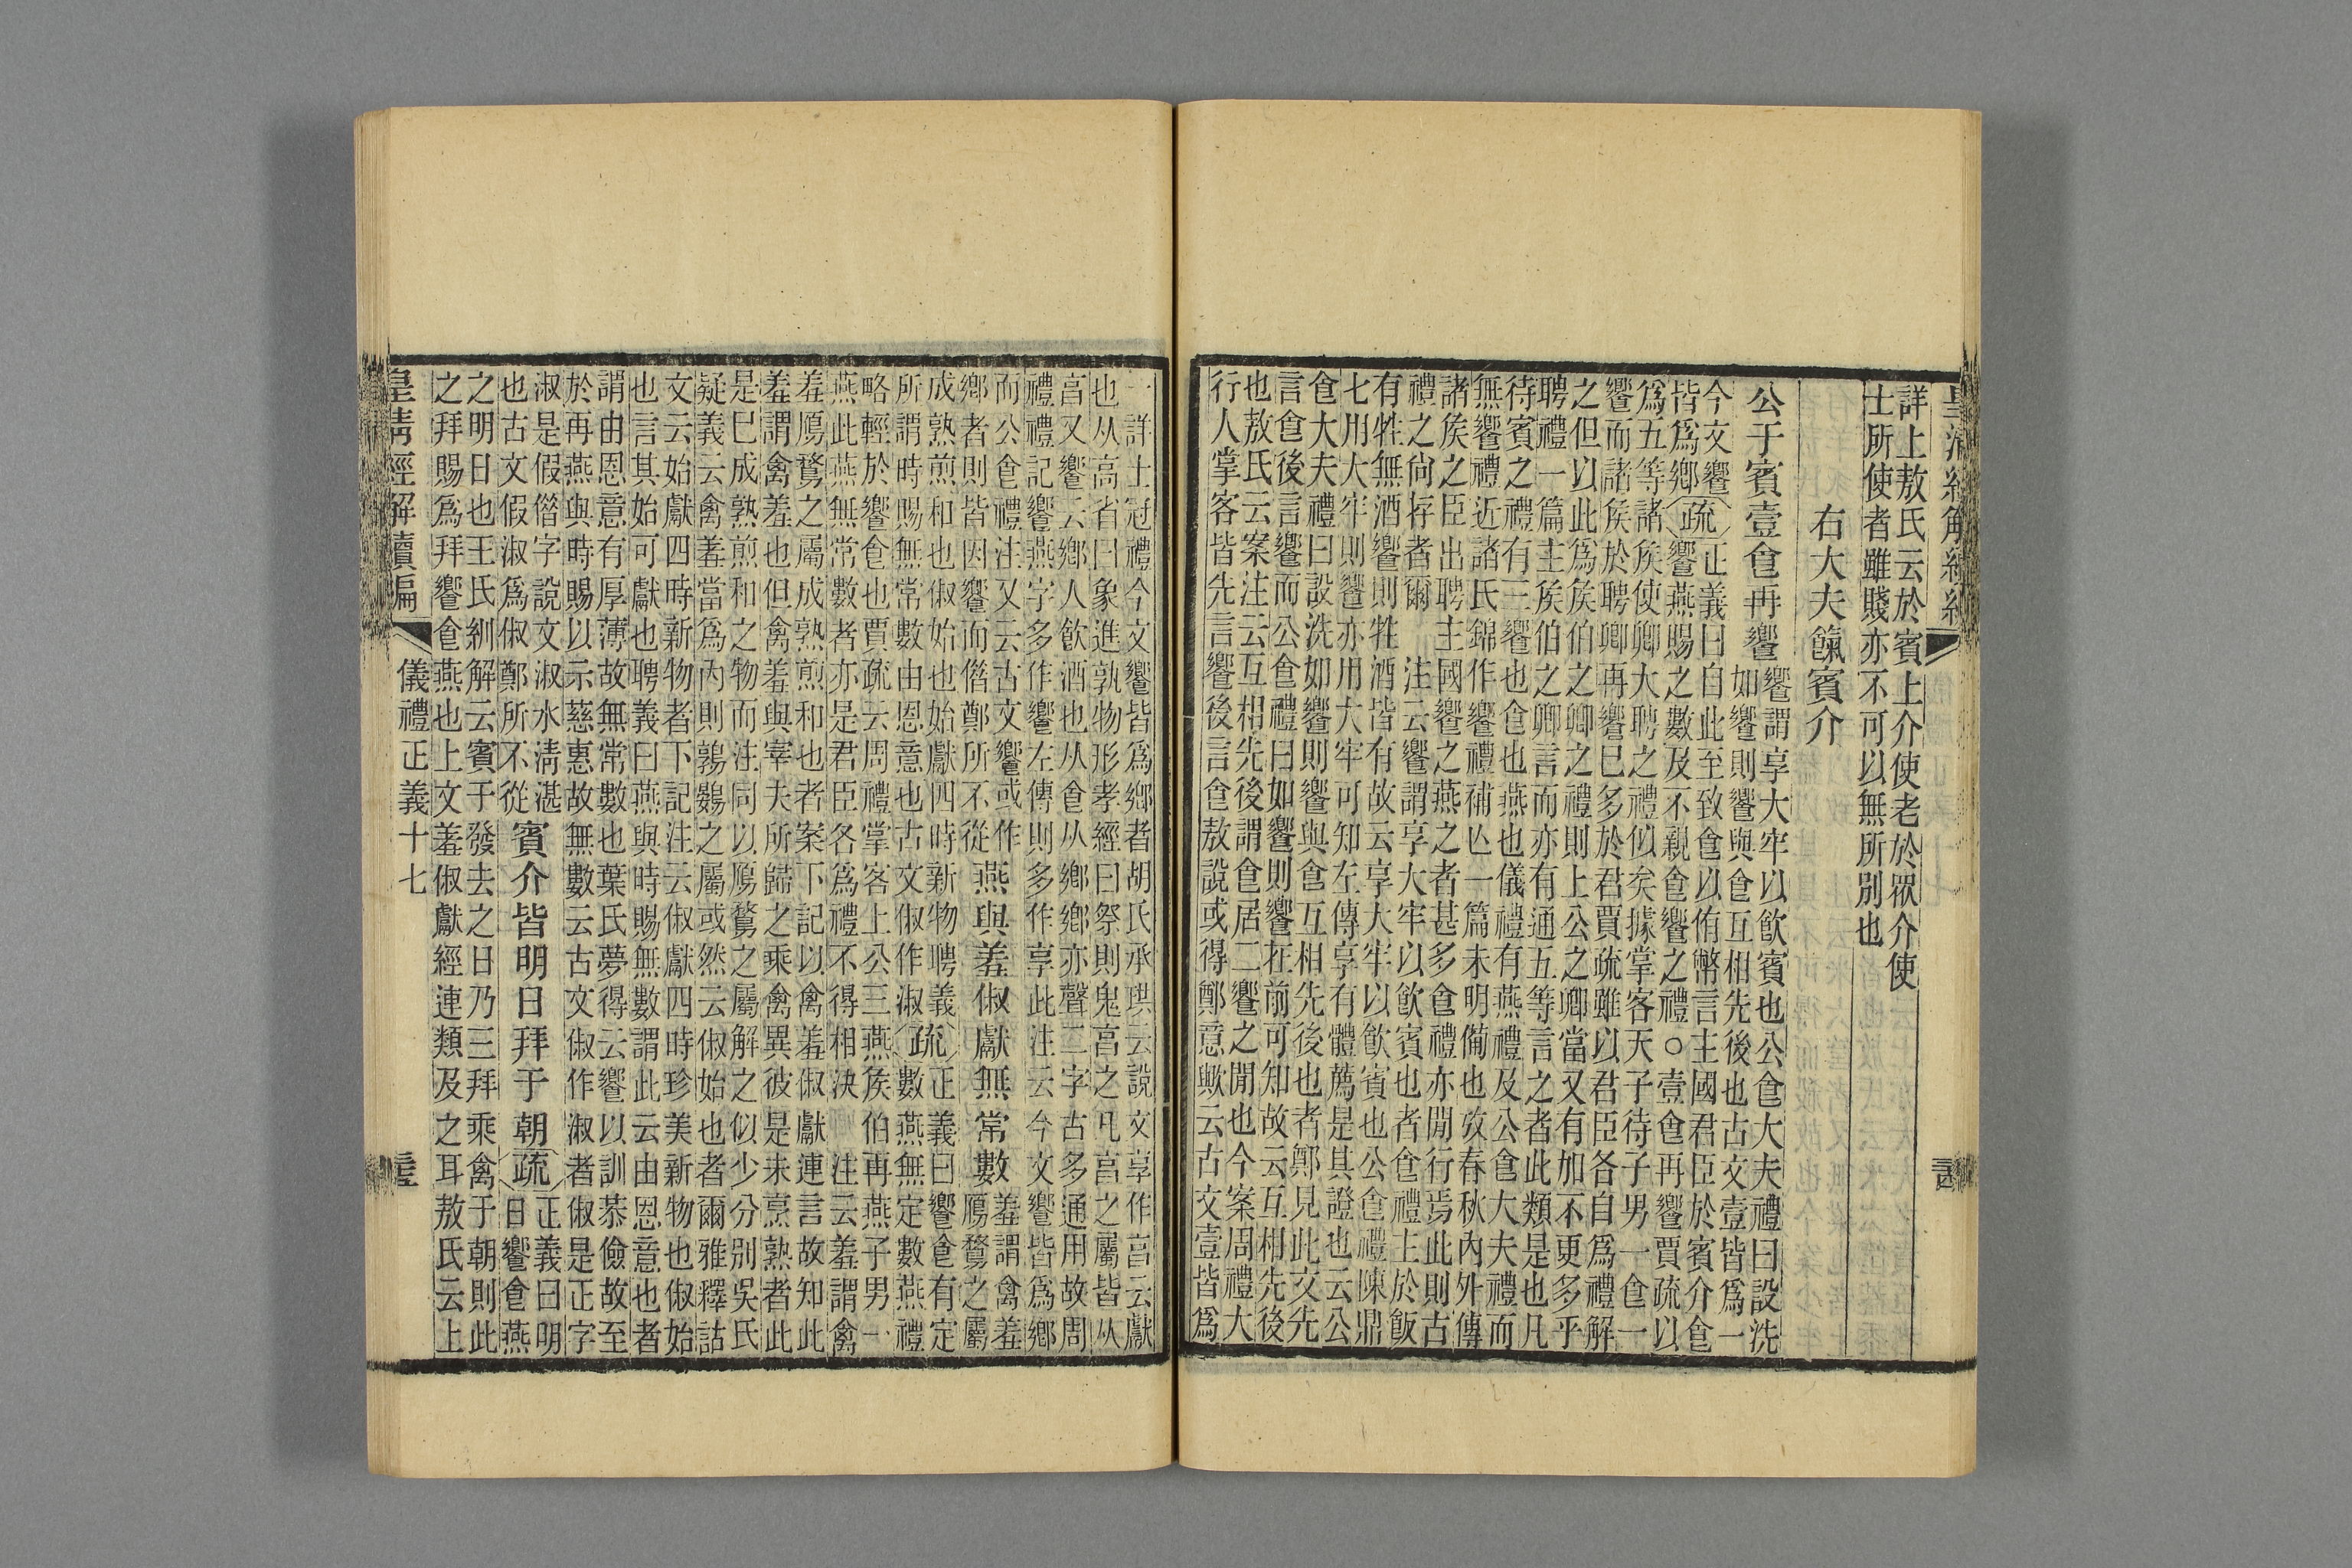 詳上敖氏云於賓上介使老於眾介使
士所使者雖賤亦不可以無所別也
右大夫餼賓介
公于賓壹食再饗
饗謂享大牢以飮賓也公食大夫禮曰設洗
如饗則饗與食互相先後也古文壹皆爲一
今文饗
皆爲鄕
疏
正義曰自此至致食以侑幣言主國君臣於賓介食
饗燕賜之數及不親食饗之禮○壹食再饗賈疏以
爲五等諸矦使卿大聘之禮似矣據掌客天子待子男一食一
饗而諸矦於聘卿再饗巳多於君賈疏雖以君臣各自爲禮解
之但以此爲矦伯之卿之禮則上公之卿當又有加不更多乎
聘禮一篇主矦伯之卿言而亦有通五等言之者此類是也凡
待賓之禮有三饗也食也燕也儀禮有燕禮及公食大夫禮而
無饗禮近諸氏錦作饗禮補亾一篇未明備也攷春秋內外傳
諸矦之臣出聘主國饗之燕之者甚多食禮亦閒行焉此則古
禮之尙存者爾　注云饗謂享大牢以飮賓也者食禮主於飯
有牲無酒饗則牲酒皆有故云享大牢以飮賓也公食禮陳鼎
七用大牢則饗亦用大牢可知左傳享有體薦是其證也云公
食大夫禮曰設洗如饗則饗與食互相先後也者鄭見此文先
言食後言饗而公食禮曰如饗則饗在前可知故云互相先後
也敖氏云案注云互相先後謂食居二饗之閒也今案周禮大
行人掌客皆先言饗後言食敖說或得鄭意歟云古文壹皆爲
一詳士冠禮今文饗皆爲鄕者胡氏承珙云說文享作亯云獻
也从高省曰象進孰物形孝經曰祭則鬼亯之凡亯之屬皆从
亯又饗云鄕人飮酒也从食从鄕鄕亦聲二字古多通用故周
禮禮記饗燕字多作饗左傳則多作享此注云今文饗皆爲鄕
而公食禮注又云古文饗或作
鄕者則皆因饗而偕鄭所不從
燕與羞俶獻無常數
羞謂禽羞
鴈鶩之屬
成熟煎和也俶始也始獻四時新物聘義
所謂時賜無常數由恩意也古文俶作淑
疏
正義曰饗食有定
數燕無定數燕禮
略輕於饗食也賈疏云周禮掌客上公三燕矦伯再燕子男一
燕此燕無常數者亦是君臣各爲禮不得相決　注云羞謂禽
羞鴈鶩之屬成熟煎和也者案下記以禽羞俶獻連言故知此
羞謂禽羞也但禽羞與宰夫所歸之乘禽異彼是未烹熟者此
是巳成熟煎和之物而注同以鴈鶩之屬解之似少分別吳氏
疑義云禽羞當爲內則鶉鷃之屬或然云俶始也者爾雅釋詁
文云始獻四時新物者下記注云俶獻四時珍美新物也俶始
也言其始可獻也聘義曰燕與時賜無數謂此云由恩意也者
謂由恩意有厚薄故無常數也葉氏夢得云饗以訓恭儉故至
於再燕與時賜以示慈惠故無數云古文俶作淑者俶是正字
淑是假偺字說文淑水淸湛
也古文假淑爲俶鄭所不從
賓介皆明日拜于朝
疏
正義曰明
日饗食燕
之明日也王氏紃解云賓于發去之日乃三拜乘禽于朝則此
之拜賜爲拜饗食燕也上文羞俶獻經連類及之耳敖氏云上
皇淸經解續編　儀禮正義十七